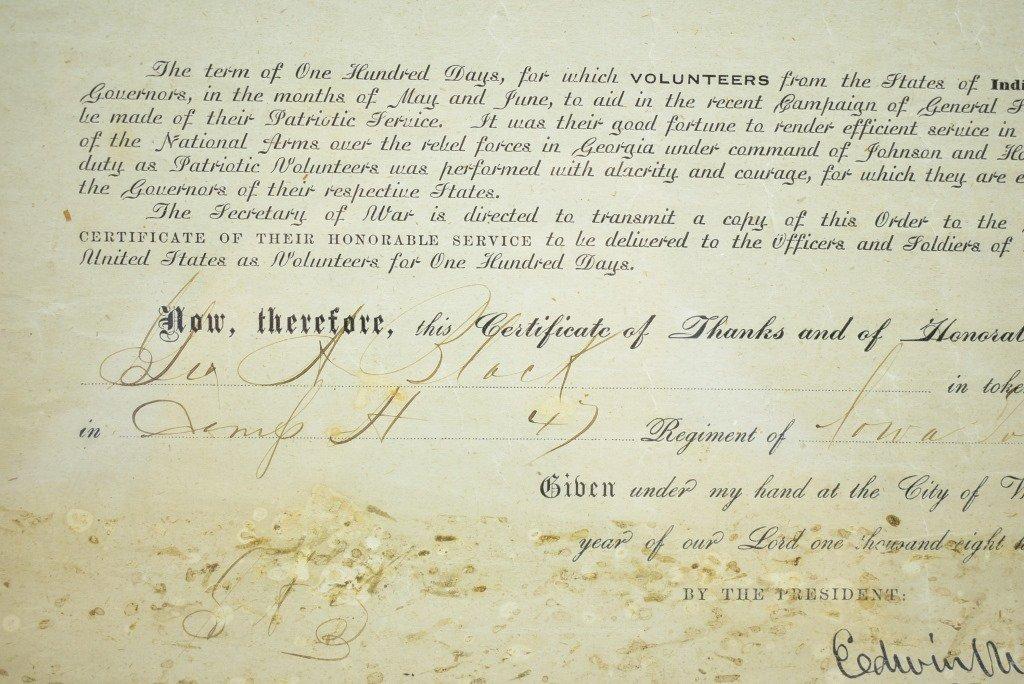 The term of One Hundred Days, for which VOLUNTEERS from the States of Indi
Governors, in the months of May and June, to aid in the recent Campaign of General
be made of their Patriotic Service. It was their good fortune to render efficient service in
of the National Arms over the rebel forces in Georgia under command of Johnson and Ho
duty as Patriotic Volunteers was performed with alacrity and courage, for which they are e
the Governors of their respective States.
The Secretary of War is directed to transmit a copy of this Order to the
CERTIFICATE OF THEIR HONORABLE SERVICE to be delivered to the Officers and Soldiers of
United States as Volunteers for One Hundred Days.
Now, therefore, this Certificate of Thanks and of Honorab
Geo A Black in toke
in Comp H 47 Regiment of Iowa
Given under my hand at the City of W
year of our Lord one thousand eight h
BY THE PRESIDENT:
Edwin M